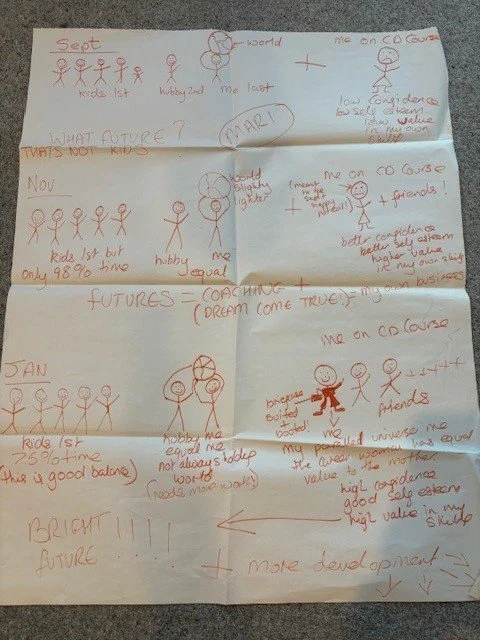 Sept
world
me on CD Course
+
kids 1st
hubby 2nd
me last
low confidence
low self esteem
low value
in my own
skills
WHAT FUTURE?
MARI
THATS NOT KIDS
Nov
World
slightly
lighter
me on CD Course
+
(meant to be
happy
not evil!)
+ friends!
kids 1st but
only 98% time
hubby me
equal
better confidence
better self esteem
higher value
in my own skills
FUTURES = COACHING +
(DREAM COME TRUE!) = my own business
me on CD Course
JAN
briefcase
suited
+
booted!
friends
kids 1st
75% time
(this is good balance)
hubby me
equal me
not always holding
world
(needs more work)
me
my parallel universe me
the career woman has equal
value to the mother
high confidence
good self esteem
high value in my
skills
BRIGHT!!!!
FUTURE
+ more development